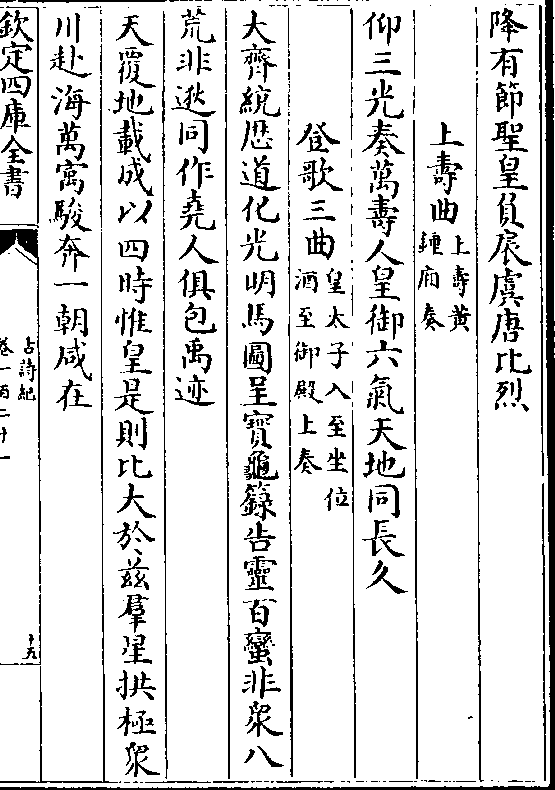 降有節聖皇負扆虞唐比烈
上壽曲上壽黄
鍾廂奏
仰三光奏萬壽人皇御六氣天地同長久
登歌三曲皇太子入至坐位
酒至御殿上奏
大齊統厯道化光明馬圖呈寳龜籙告靈百蠻非衆八
荒非逖同作堯人俱包禹迹
天覆地載成以四時惟皇是則比大於兹羣星拱極衆
川赴海萬㝢駿奔一朝咸在
欽定四庫全書
古詩紀
卷一百二十一
十九